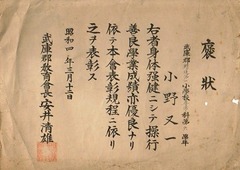 褒狀
武庫郡 小學校 科第 學年
小野又一
右者身体强健ニシテ操行
善良學業成績亦優良ナリ
依テ本會表彰規程ニ依リ
之ヲ表彰ス
昭和四年三月十二日
武庫郡教育會長安井淸雄